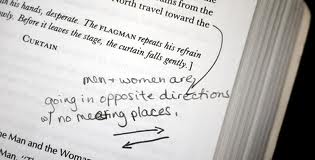 ns from the
North travel toward the
in his hands, desperate. The FLAGMAN repeats his refrain
ously. Before it leaves the stage, the curtain falls gently.]
CURTAIN
men + women are
going in opposite directions
w/ no meeting places.
he Man and the Woma